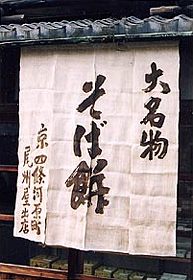 大名物
そば餅
京四條河原町
尾州屋老店